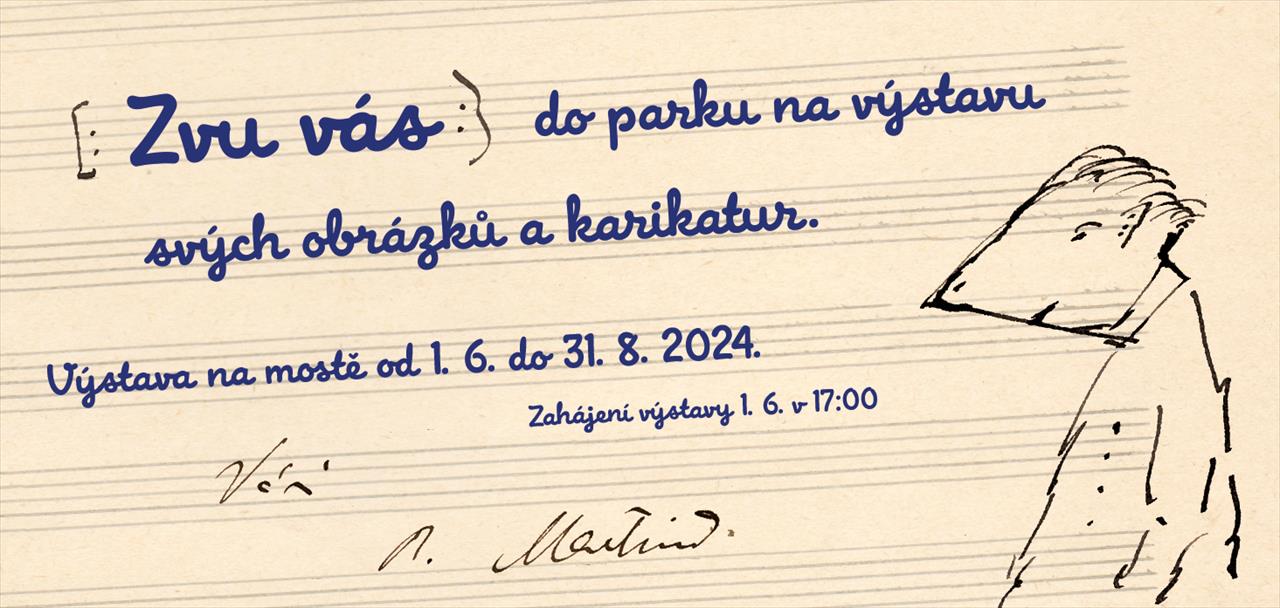 [: Zvu vás :} do parku na výstavu
svých obrázků a karikatur.
Výstava na mostě od 1. 6. do 31. 8. 2024.
Zahájení výstavy 1. 6. v 17:00
Váš
B. Martinů.